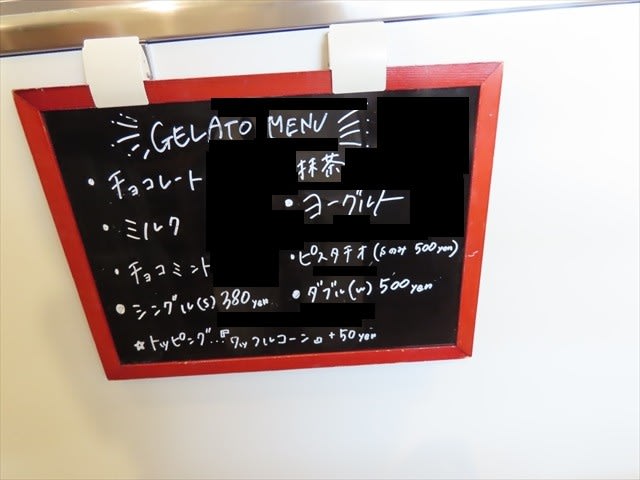 GELATO MENU
・チョコレート
抹茶
・ミルク
・ヨーグルト
・チョコミント
・ピスタチオ(Sのみ 500yen)
・シングル(S) 380yen
・ダブル(W) 500yen
☆トッピング…『ワッフルコーン』+50yen